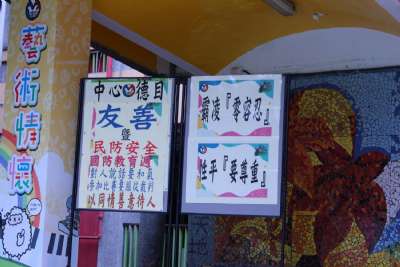 藝術情懷
中心德目
友善
暨
民防安全
國防教育週
對人說話要和氣
參加比賽要服從裁判
以同情善意待人
霸凌『零容忍』
性平『要尊重』